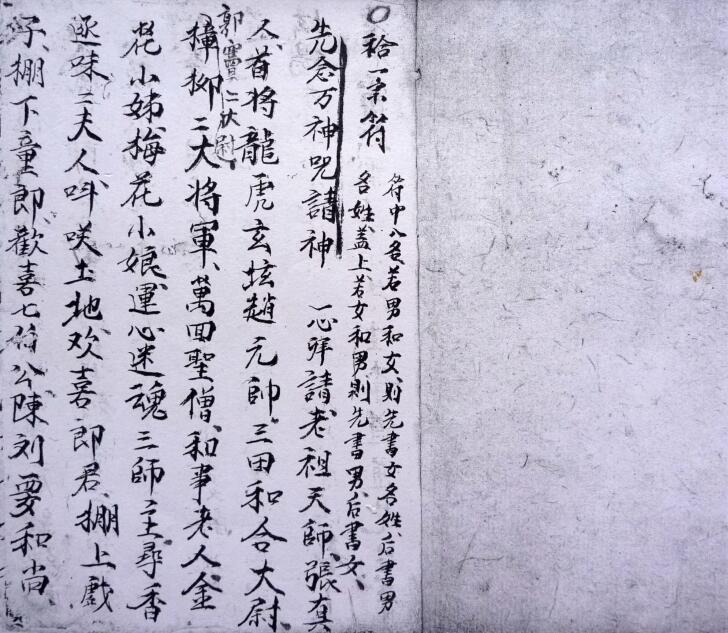 祫一宗符
符中八名若男和女則先書女名姓后書男
名姓盖上若女和男則先書男后書女
先念万神咒請神 一心拜請老祖天師張真
人首将龍虎玄坛趙元帥三田和合大尉
郭竇二状尉
獐柳二大将軍萬回聖僧和事老人金
花小姊梅花小娘運心迷魂三師主尋香
逐味二夫人呌咲土地欢喜郎君棚上戲
子棚下童郎歡喜七 公陳刘要和尚